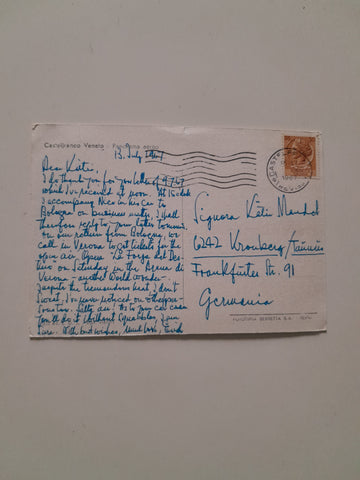 Castelfranco Veneto - Panorama aereo
13. July 1967
Dear Käti,
I do thank you for your letter of 9/7/67
which I've received at noon. At 15 o'clock
I accompany Nico in his car to
Bologna on business matters, I shall
therefore reply to your letter tomorrow.
On our return from Bologna, we
call in Verona to get tickets for the
open air Opera "La Forza del Des-
tino" on Saturday in the Arena di
Verona - another World wonder.
Despite the tremendous heat I don't
sweat, I've never noticed on other per-
sons too. Silly me! As to my car case
you'll do it without
With best wishes, much love,
Signora Käti Mandel
6242 Kronberg/Taunus
Frankfurter Str. 91
Germania
FOTOTIPIA BERRETTA S.A.